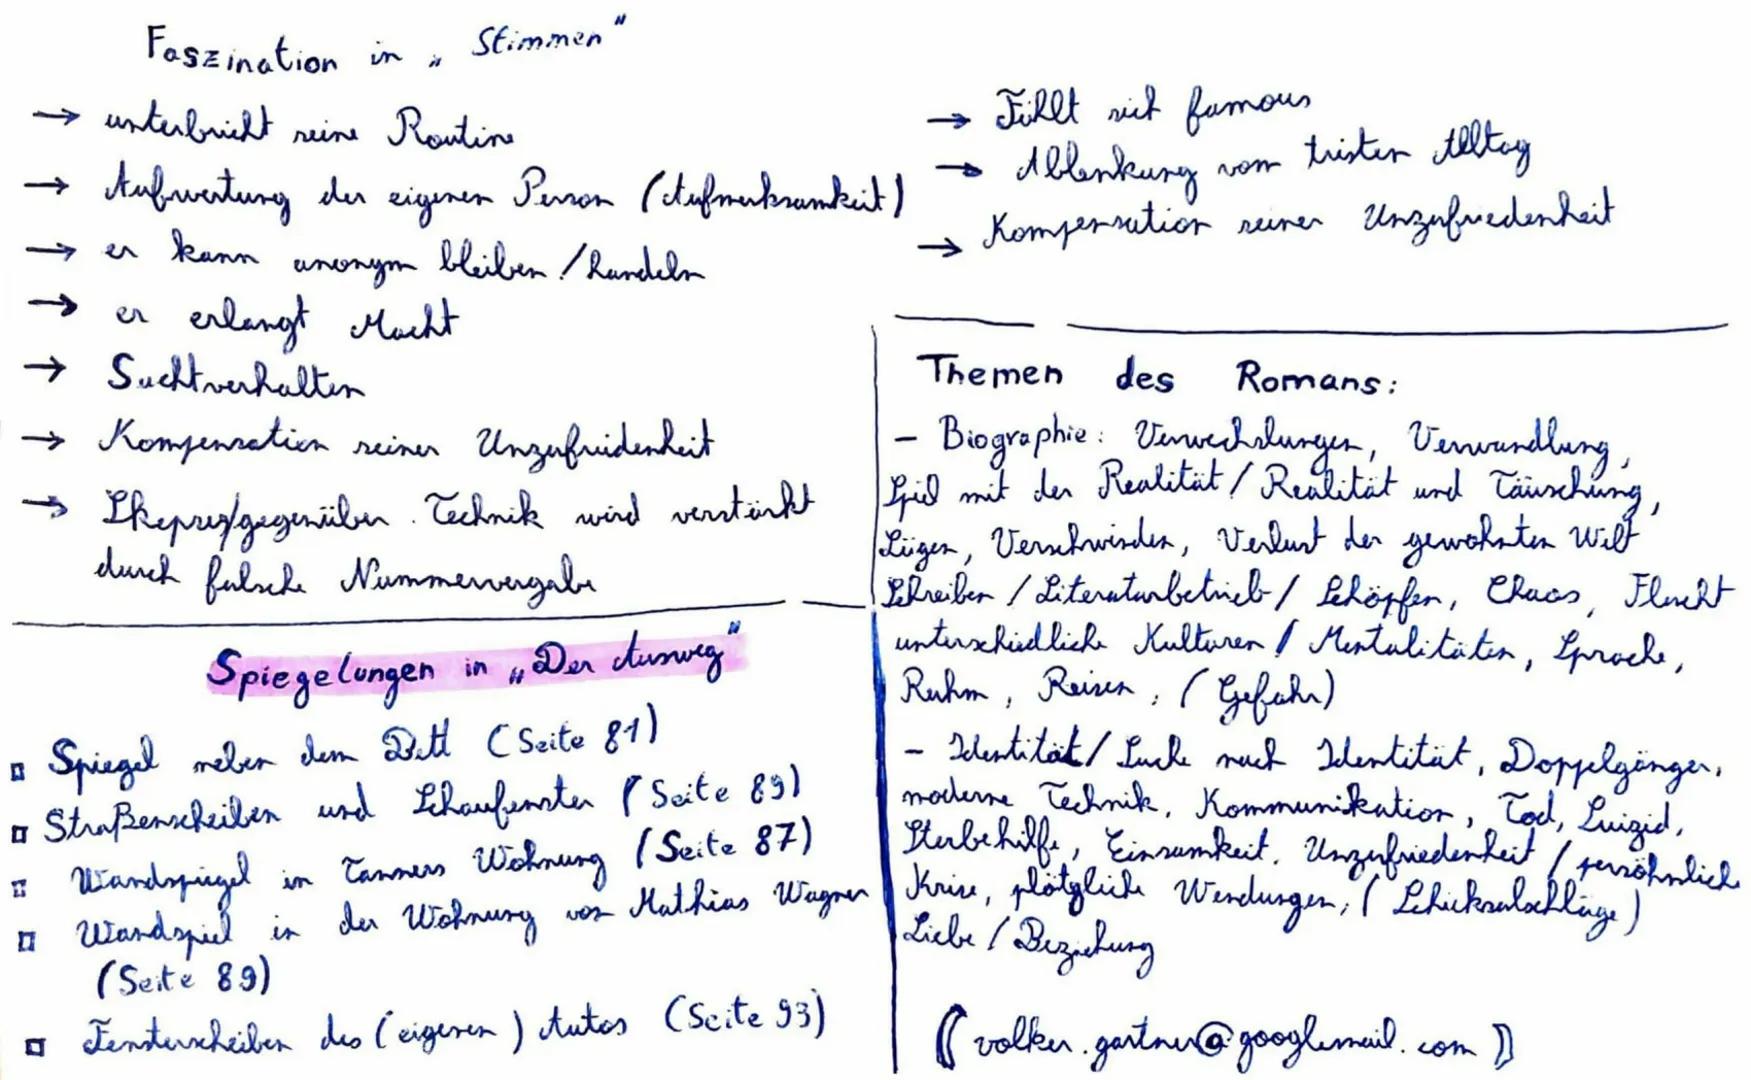 Faszination in „Stimmen"
→ unterbricht seine Routine
→ Aufwertung der eigenen Person (Aufmerksamkeit)
→ er kann anonym bleiben / handeln
→ er erlangt Macht
→ Suchtverhalten
→ Kompensation seiner Unzufridenheit
→ gegenüber Technik wird verstärkt
durch falsche Nummernvergabe
→ Fühlt sich famous
→ Ablenkung vom tristen Alltag
→ Kompensation seiner Unzufriedenheit
Spiegelungen in „Der Ausweg"
Spiegel neben dem Bett (Seite 81)
Straßenscheiben und Schaufenster (Seite 89)
Wandspiegel in Tanners Wohnung (Seite 87)
Wandspiel in der Wohnung von Mathias Wagner
(Seite 89)
Fensterscheiben des (eigenen) Autos (Seite 93)
Themen des Romans:
- Biographie: Verwechslungen, Verwandlung,
Spiel mit der Realität / Realität und Täuschung,
Lügen, Verschwinden, Verlust der gewohnten Welt
Schreiben / Literaturbetrieb / Schöpfen, Chaos, Flucht
unterschiedliche Kulturen / Mentalitäten, Sprache,
Ruhm, Reisen, (Gefahr)
- Identität / Suche nach Identität, Doppelgänger,
moderne Technik, Kommunikation, Tod, Suizid,
Sterbehilfe, Einsamkeit, Unzufriedenheit / persöhnlich
Krise, plötzliche Wendungen, (Schicksalschläge)
Liebe / Beziehung
(( volker.gartner@googlemail.com ))